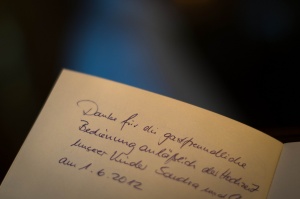 Danke für die gastfreundliche
Bedienung anläßlich der Hochzeit
unserer Kinder Sandra und
am 1.6.2012